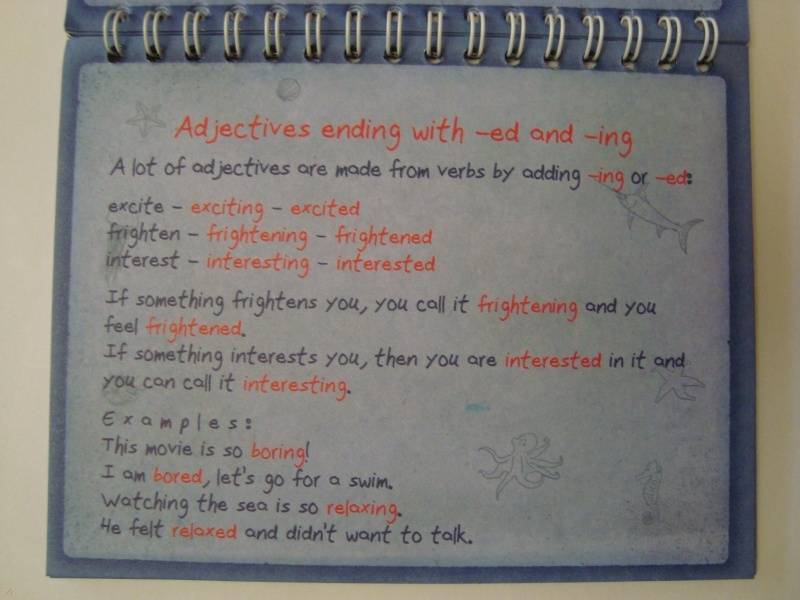 Adjectives ending with -ed and -ing
A lot of adjectives are made from verbs by adding -ing or -ed:
excite - exciting - excited
frighten - frightening - frightened
interest - interesting - interested
If something frightens you, you call it frightening and you
feel frightened.
If something interests you, then you are interested in it and
you can call it interesting.
Examples:
This movie is so boring!
I am bored, let's go for a swim.
Watching the sea is so relaxing.
He felt relaxed and didn't want to talk.